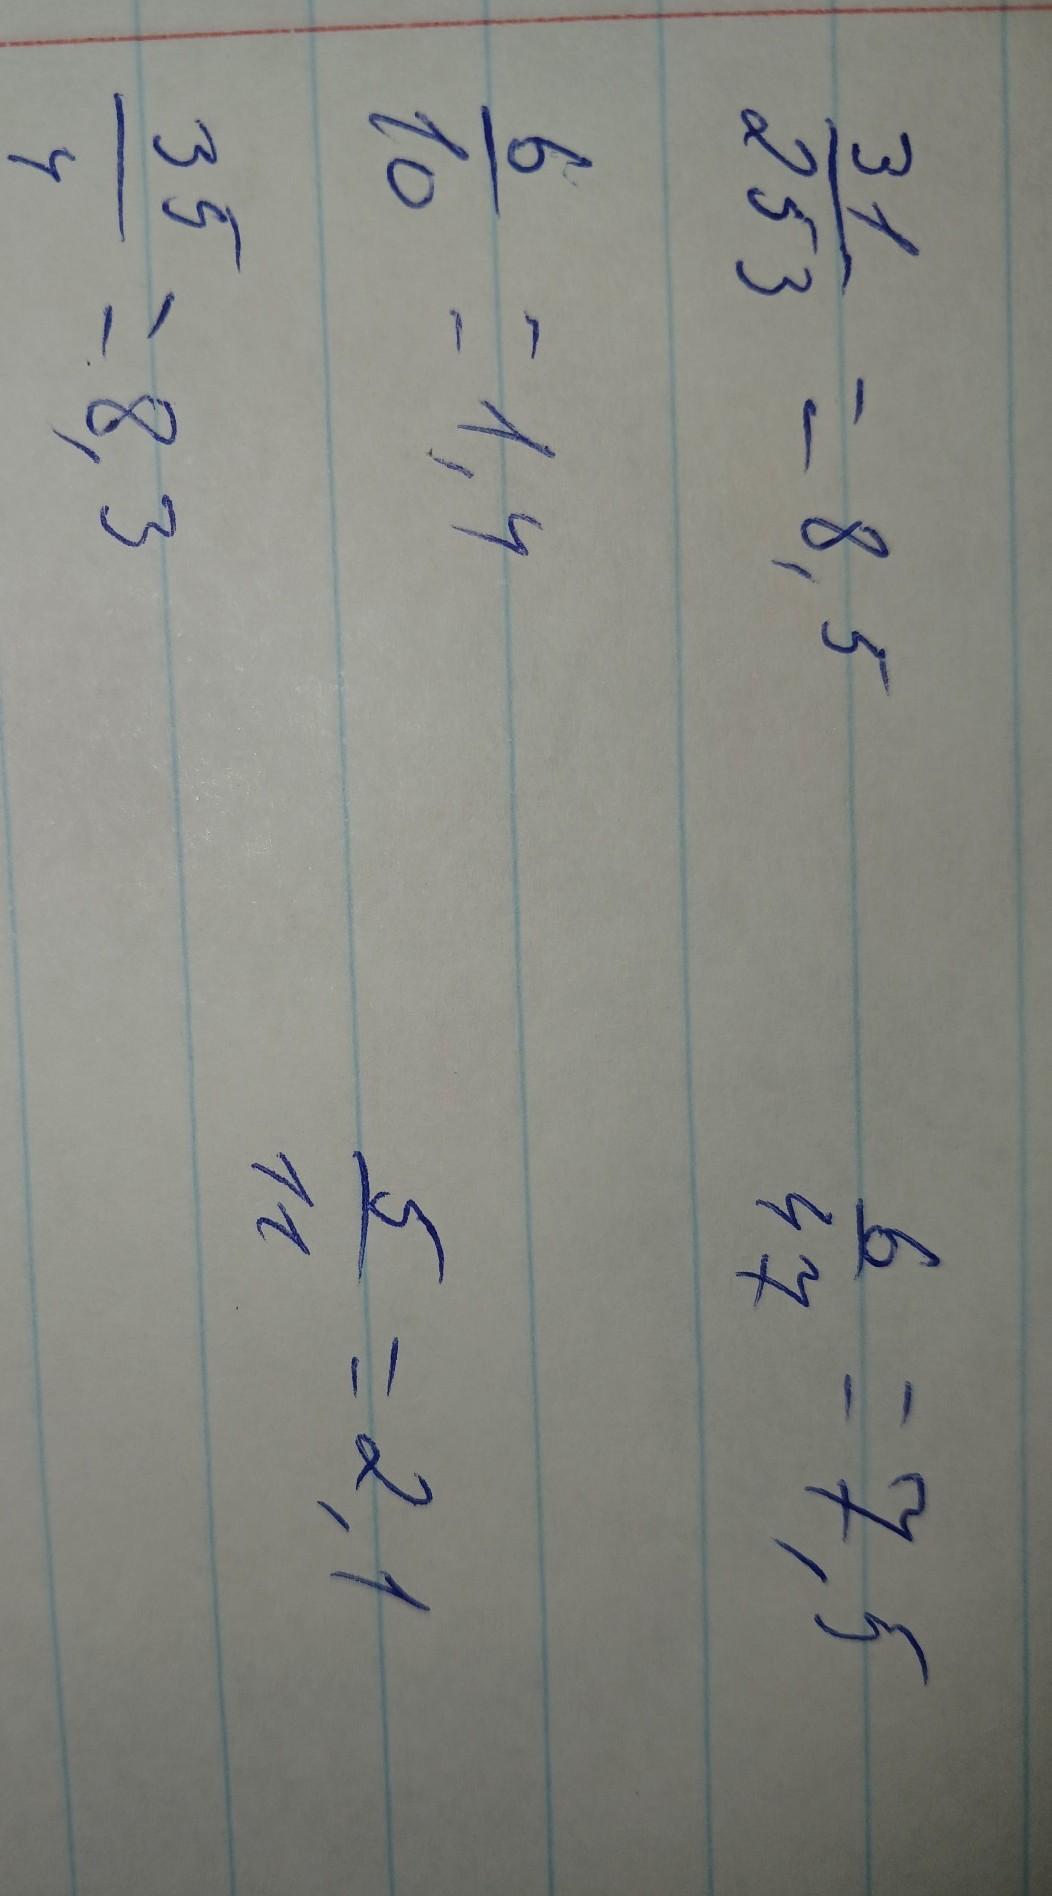 31/253 = 8,5
6/47 = 7,5
6/10 = 1,4
5/11 = 2,1
35/4 = 8,3